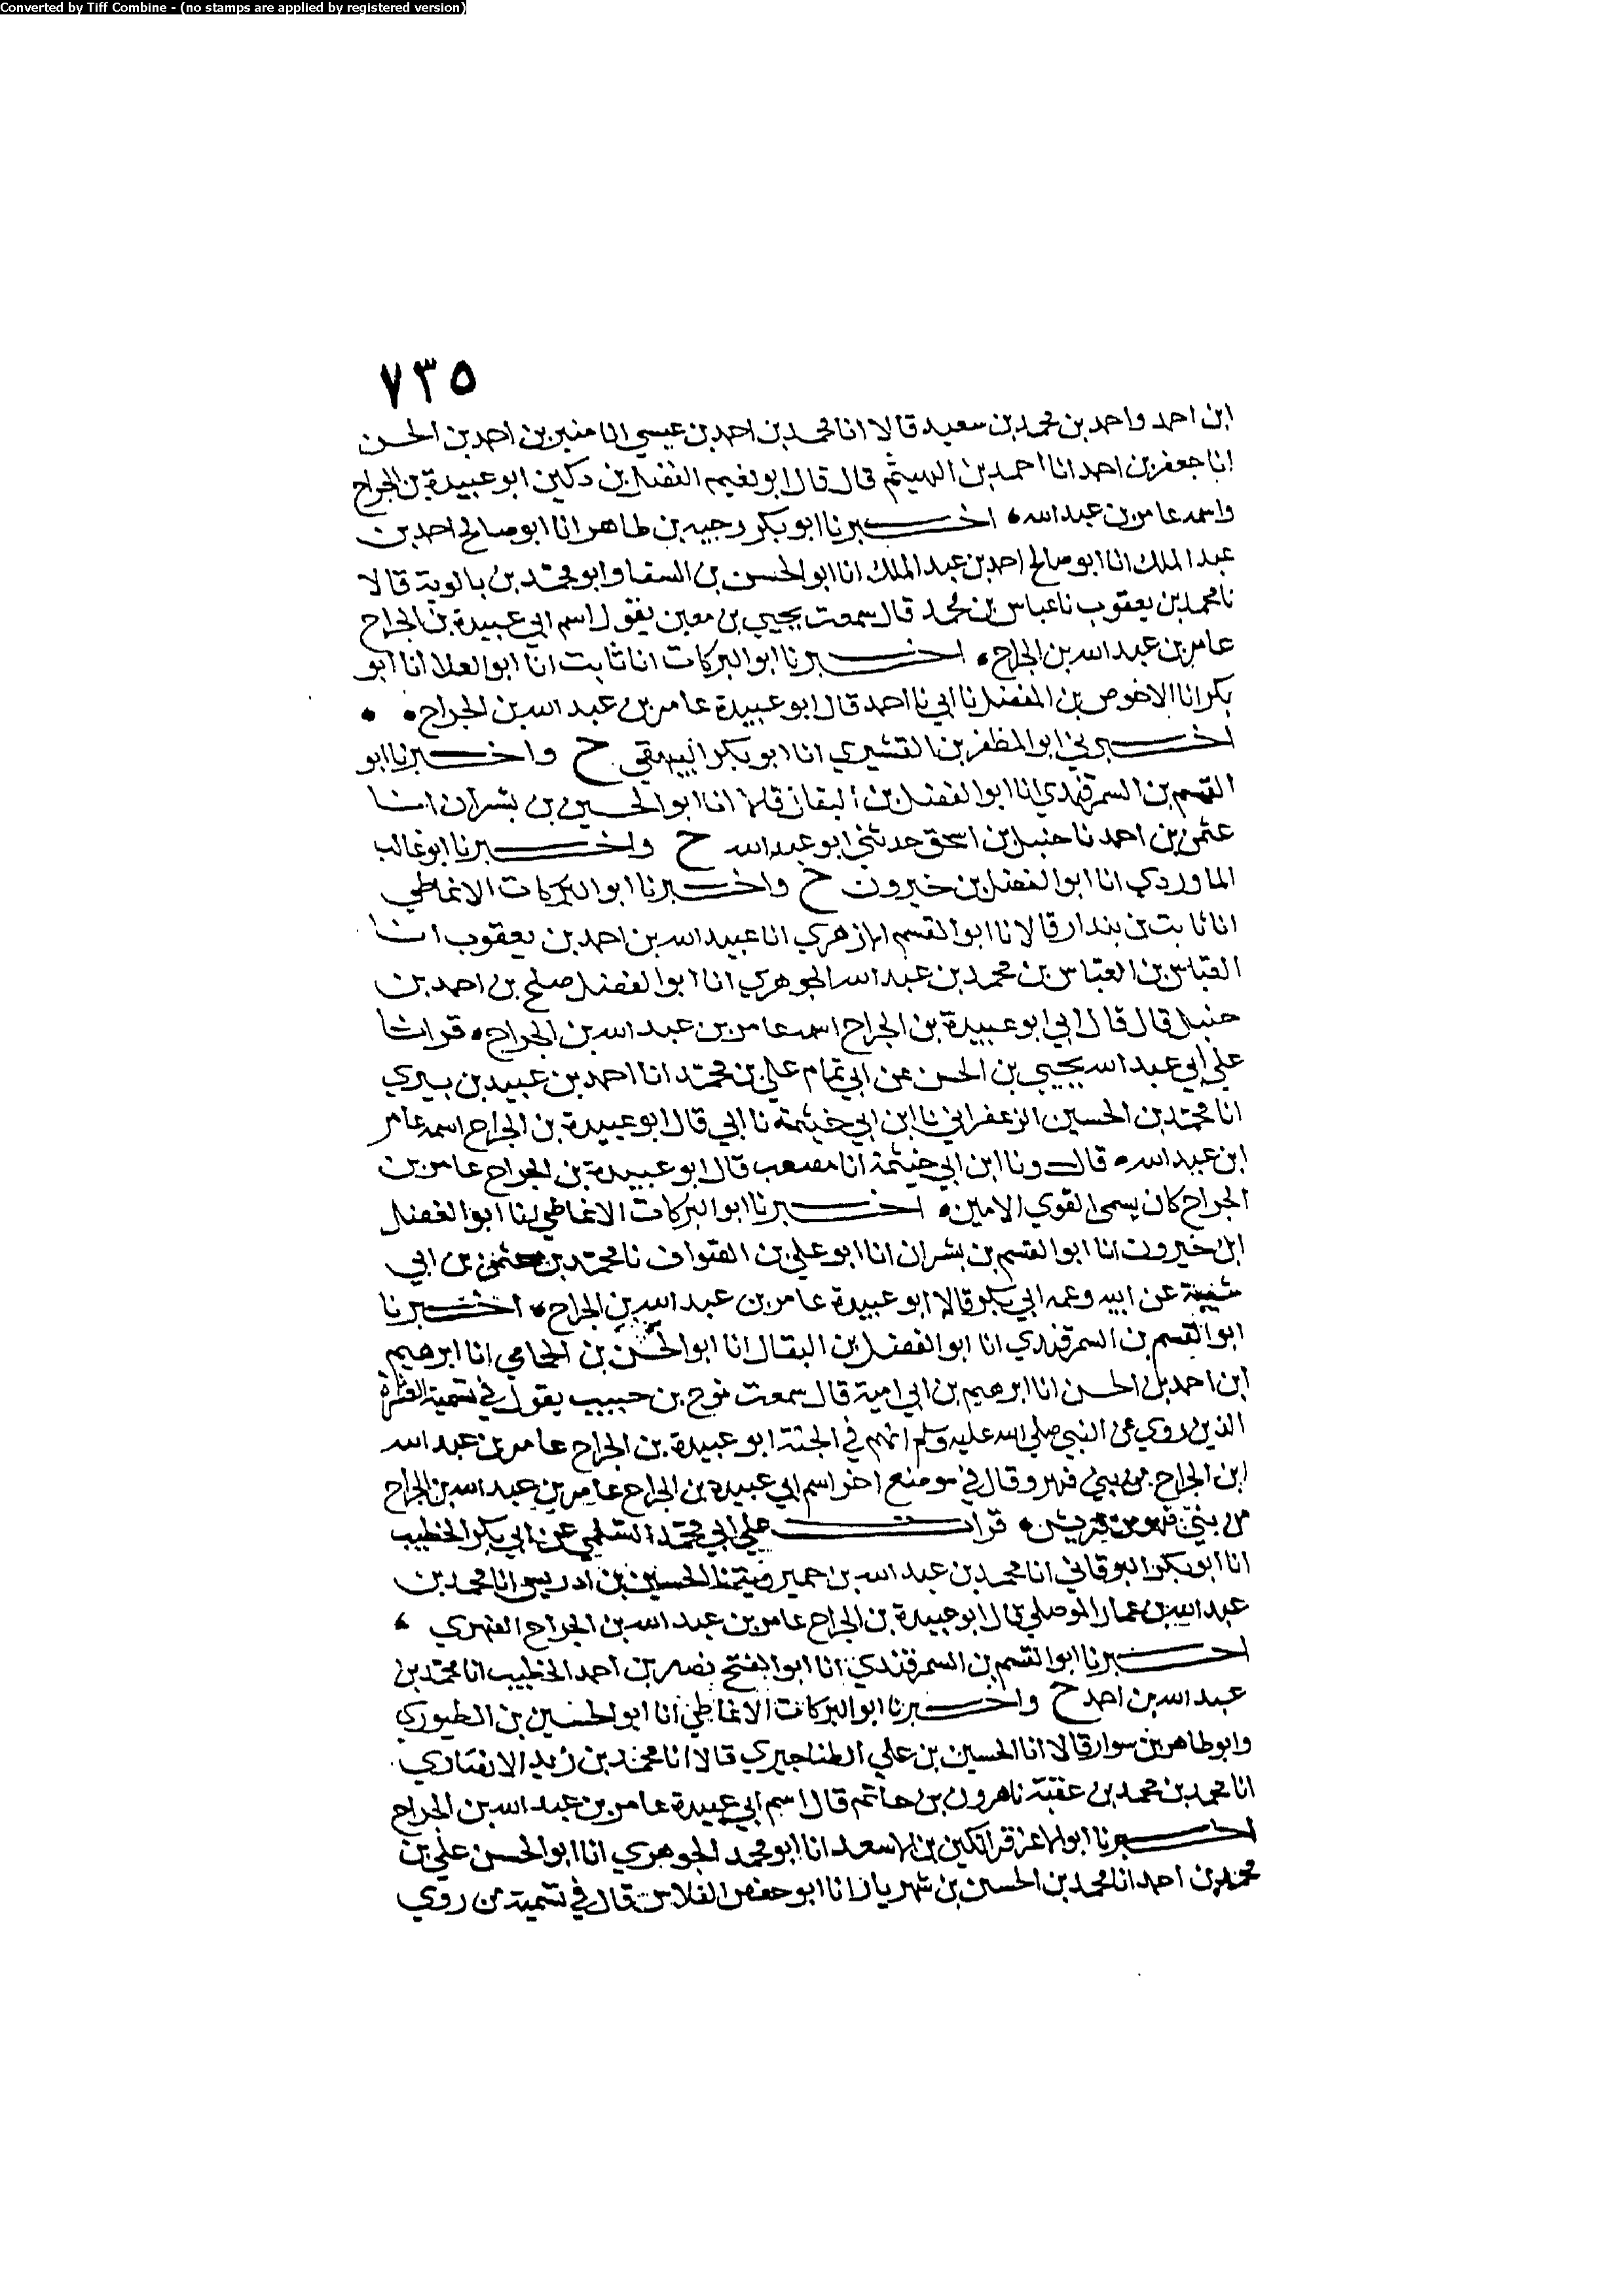 Converted by Tiff Combine - (no stamps are applied by registered version)
٧٣٥
ابن احمد واحمد بن محمد بن سعيد قالا انا محمد بن احمد بن عيسي انا منير بن احمد بن الحسن
انا جعفر بن احمد انا احمد بن الهيثم قال قال ابو نعيم الفضل بن دكين ابو عبيدة بن الجراح
واسمه عامر بن عبد الله • اخبرنا ابو بكر وجيه بن طاهر انا ابو صالح احمد بن
عبد الملك انا ابو صالح احمد بن عبد الملك انا ابو الحسن بن السقا وابو محمد بن بالوية قالا
نا محمد بن يعقوب نا عباس بن محمد قال سمعت يحيي بن معين يقول اسم ابي عبيدة بن الجراح
عامر بن عبد الله بن الجراح • اخبرنا ابو البركات انا ثابت انا ابو العلا انا ابو
بكر انا الاخوص بن المفضل نا ابي نا احمد قال ابو عبيدة عامر بن عبد الله بن الجراح • •
اخبرني ابو المظفر بن القشيري انا ابو بكر البيهقي ح واخبرنا ابو
القسم بن السمرقندي انا ابو الفضل بن البقال قالا انا ابو الحسين بن بشران انا
عثمن بن احمد نا حنبل بن اسحق حدثني ابو عبد الله ح واخبرنا ابو غالب
الماوردي انا ابو الفضل بن خيرون ح واخبرنا ابو البركات الانماطي
انا ثابت بن بندار قالا نا ابو القسم الازهري انا عبيد الله بن احمد بن يعقوب انا
العباس بن العباس بن محمد بن عبد الله الجوهري انا ابو الفضل صلح بن احمد بن
حنبل قال قال ابي ابو عبيدة بن الجراح اسمه عامر بن عبد الله بن الجراح • قراتا
علي ابي عبد الله يحيي بن الحسن عن ابي تمام علي بن محمد انا احمد بن عبيد بن بيري
انا محمد بن الحسين الزعفراني نا ابن ابي خيثمة نا ابي قال ابو عبيدة بن الجراح اسمه عامر
ابن عبد الله • قال ونا ابن ابي خيثمة انا مصعب قال ابو عبيدة بن الجراح عامر بن
الجراح كان يسمى القوي الامين • اخبرنا ابو البركات الانماطي انا ابو الفضل
ابن خيرون انا ابو القسم بن بشران انا ابو علي بن الصواف نا محمد بن عثمن بن ابي
شيبة عن ابيه وعمه ابي بكر قالا ابو عبيدة عامر بن عبد الله بن الجراح • اخبرنا
ابو القسم بن السمرقندي انا ابو الفضل بن البقال انا ابو الحسن بن الحمامي انا ابرهيم
ابن احمد بن الحسن انا ابرهيم بن ابي امية قال سمعت نوح بن حبيب يقول في تسمية العشرة
الذين روي عن النبي صلي الله عليه وسلم انهم في الجنة ابو عبيدة بن الجراح عامر بن عبد الله
ابن الجراح من بني فهر وقال في موضع اخر اسم ابي عبيدة بن الجراح عامر بن عبد الله بن الجراح
من بني فهر من قريش • قرات علي ابي محمد السلمي عن ابي بكر الخطيب
انا ابو بكر البرقاني انا محمد بن عبد الله بن خميرويه نا الحسين بن ادريس انا محمد بن
عبد الله بن عمار الموصلي قال ابو عبيدة بن الجراح عامر بن عبد الله بن الجراح الفهري •
اخبرنا ابو القسم بن السمرقندي انا ابو الفتح نصر بن احمد الخطيب انا محمد بن
عبد الله بن احمد ح واخبرنا ابو البركات الانماطي انا ابو الحسين بن الطيوري
وابو طاهر بن سوار قالا انا الحسين بن علي الطناجيري قالا انا محمد بن زيد الانصاري
انا محمد بن محمد بن عقبة نا هرون بن حاتم قال اسم ابي عبيدة عامر بن عبد الله بن الجراح
اخبرنا ابو الاعز قراتكين بن الاسعد انا ابو محمد الجوهري انا ابو الحسن علي بن
محمد بن احمد انا محمد بن الحسين بن شهريار انا ابو حفص الفلاس قال في تسمية من روي